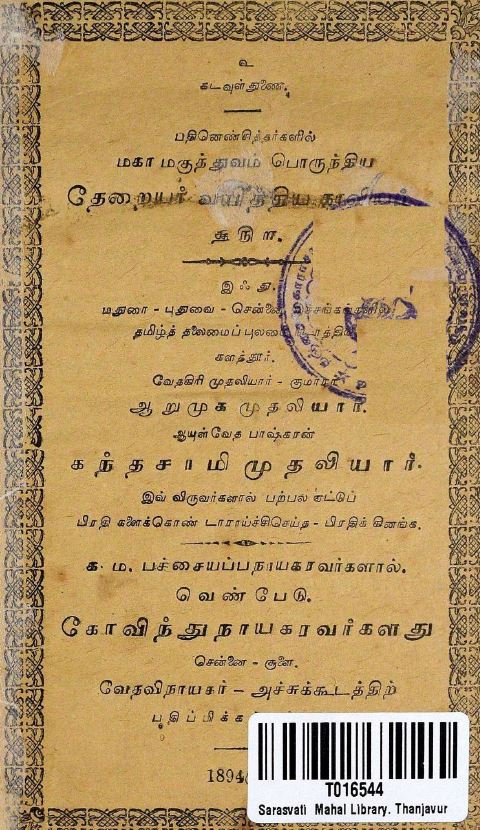 உ
கடவுள்துணை.
பதினெண்சித்தர்களில்
மகா மகுத்துவம் பொருந்திய
தேறையர்
இஃது
மதுரை - புதுவை - சென்னை
தமிழ்த் தலைமைப் புலமை
களத்தூர்.
வேதகிரி முதலியார் - குமாரர்
ஆறுமுக முதலியார்.
ஆயுள்வேத பாஷ்கரன்
கந்தசாமி முதலியார்.
இவ் விருவர்களால் பற்பல ஏட்டுப்
பிரதி களைக்கொண் டாராய்ச்சிசெய்த - பிரதிக் கிணங்க.
க. ம. பச்சையப்பநாயகரவர்களால்.
வெண்பேடு.
கோவிந்துநாயகரவர்களது
சென்னை - சூளை.
வேதவிநாயகர் - அச்சுக்கூடத்திற்
பதிப்பிக்க
1894
T016544
Sarasvati Mahal Library, Thanjavur